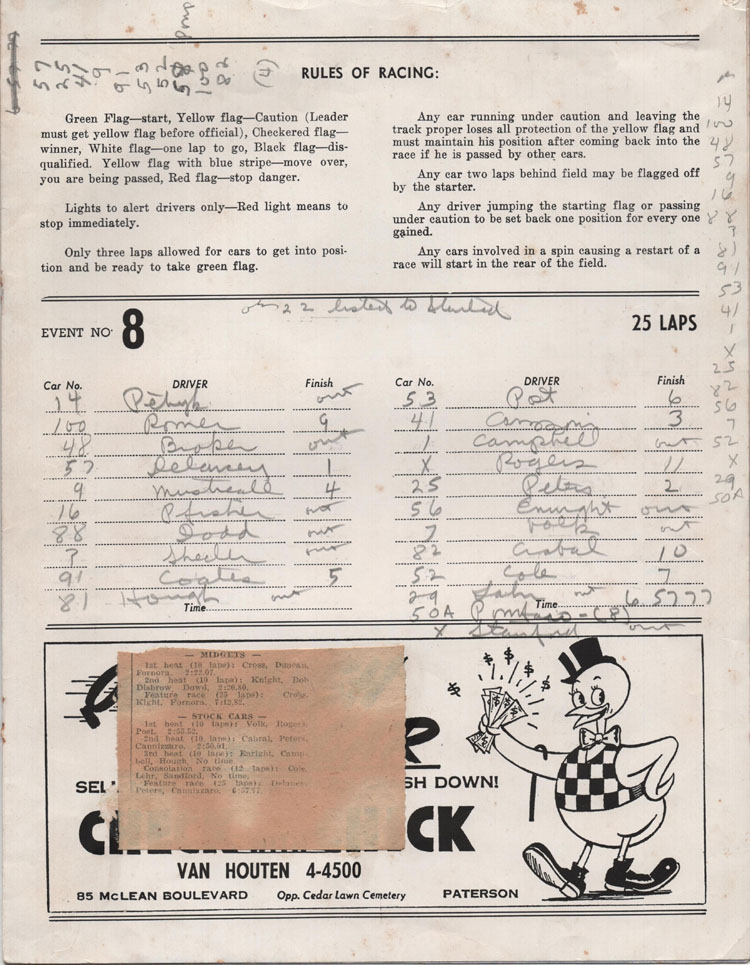 57
25
41
9
91
53
52
100
82
(4)
RULES OF RACING:
Green Flag—start, Yellow flag—Caution (Leader
must get yellow flag before official), Checkered flag—
winner, White flag—one lap to go, Black flag—dis-
qualified. Yellow flag with blue stripe—move over,
you are being passed, Red flag—stop danger.
Lights to alert drivers only—Red light means to
stop immediately.
Only three laps allowed for cars to get into posi-
tion and be ready to take green flag.
Any car running under caution and leaving the
track proper loses all protection of the yellow flag and
must maintain his position after coming back into the
race if he is passed by other cars.
Any car two laps behind field may be flagged off
by the starter.
Any driver jumping the starting flag or passing
under caution to be set back one position for every one
gained.
Any cars involved in a spin causing a restart of a
race will start in the rear of the field.
14
100
48
57
9
16
88
?
81
91
53
41
1
X
25
82
56
7
52
X
29
50A
22 listed to started
EVENT NO. 8
25 LAPS
Car No. DRIVER Finish
14 out
100 Romer 9
48 Broker out
57 Delancey 1
9 4
16 Pfister out
88 Dodd out
? Sheeler out
91 Coates 5
81 Hough out
Time
Car No. DRIVER Finish
53 Post 6
41 3
1 Campbell out
X Rogers 11
25 Peters 2
56 Enright out
7 Volk out
82 Cabral 10
52 Cole 7
29 out
Time 6 5777
50A (8)
X Stanford out
— MIDGETS —
1st heat (10 laps): Cross, Duncan,
Fornora. 2:22.07.
2nd heat (10 laps): Knight, Bob
Disbrow, Dowd. 2:26.80.
Feature race (25 laps): Cross,
Kight, Fornora. 7:12.82.
— STOCK CARS —
1st heat (10 laps): Volk, Rogers,
Post. 2:55.52.
2nd heat (10 laps): Cabral, Peters,
Cannizzaro. 2:50.01.
3rd heat (10 laps): Enright, Camp-
bell, Hough. No time.
Consolation race (12 laps): Cole,
Lehr, Sandford. No time.
Feature race (25 laps): Delancey,
Peters, Cannizzaro. 6:57.77.
SEL
SH DOWN!
CK
VAN HOUTEN 4-4500
85 McLEAN BOULEVARD Opp. Cedar Lawn Cemetery PATERSON